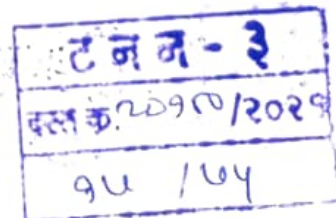 ट न न - ३
दस्त क्र. २०१९०/२०२१
१५ / ७५